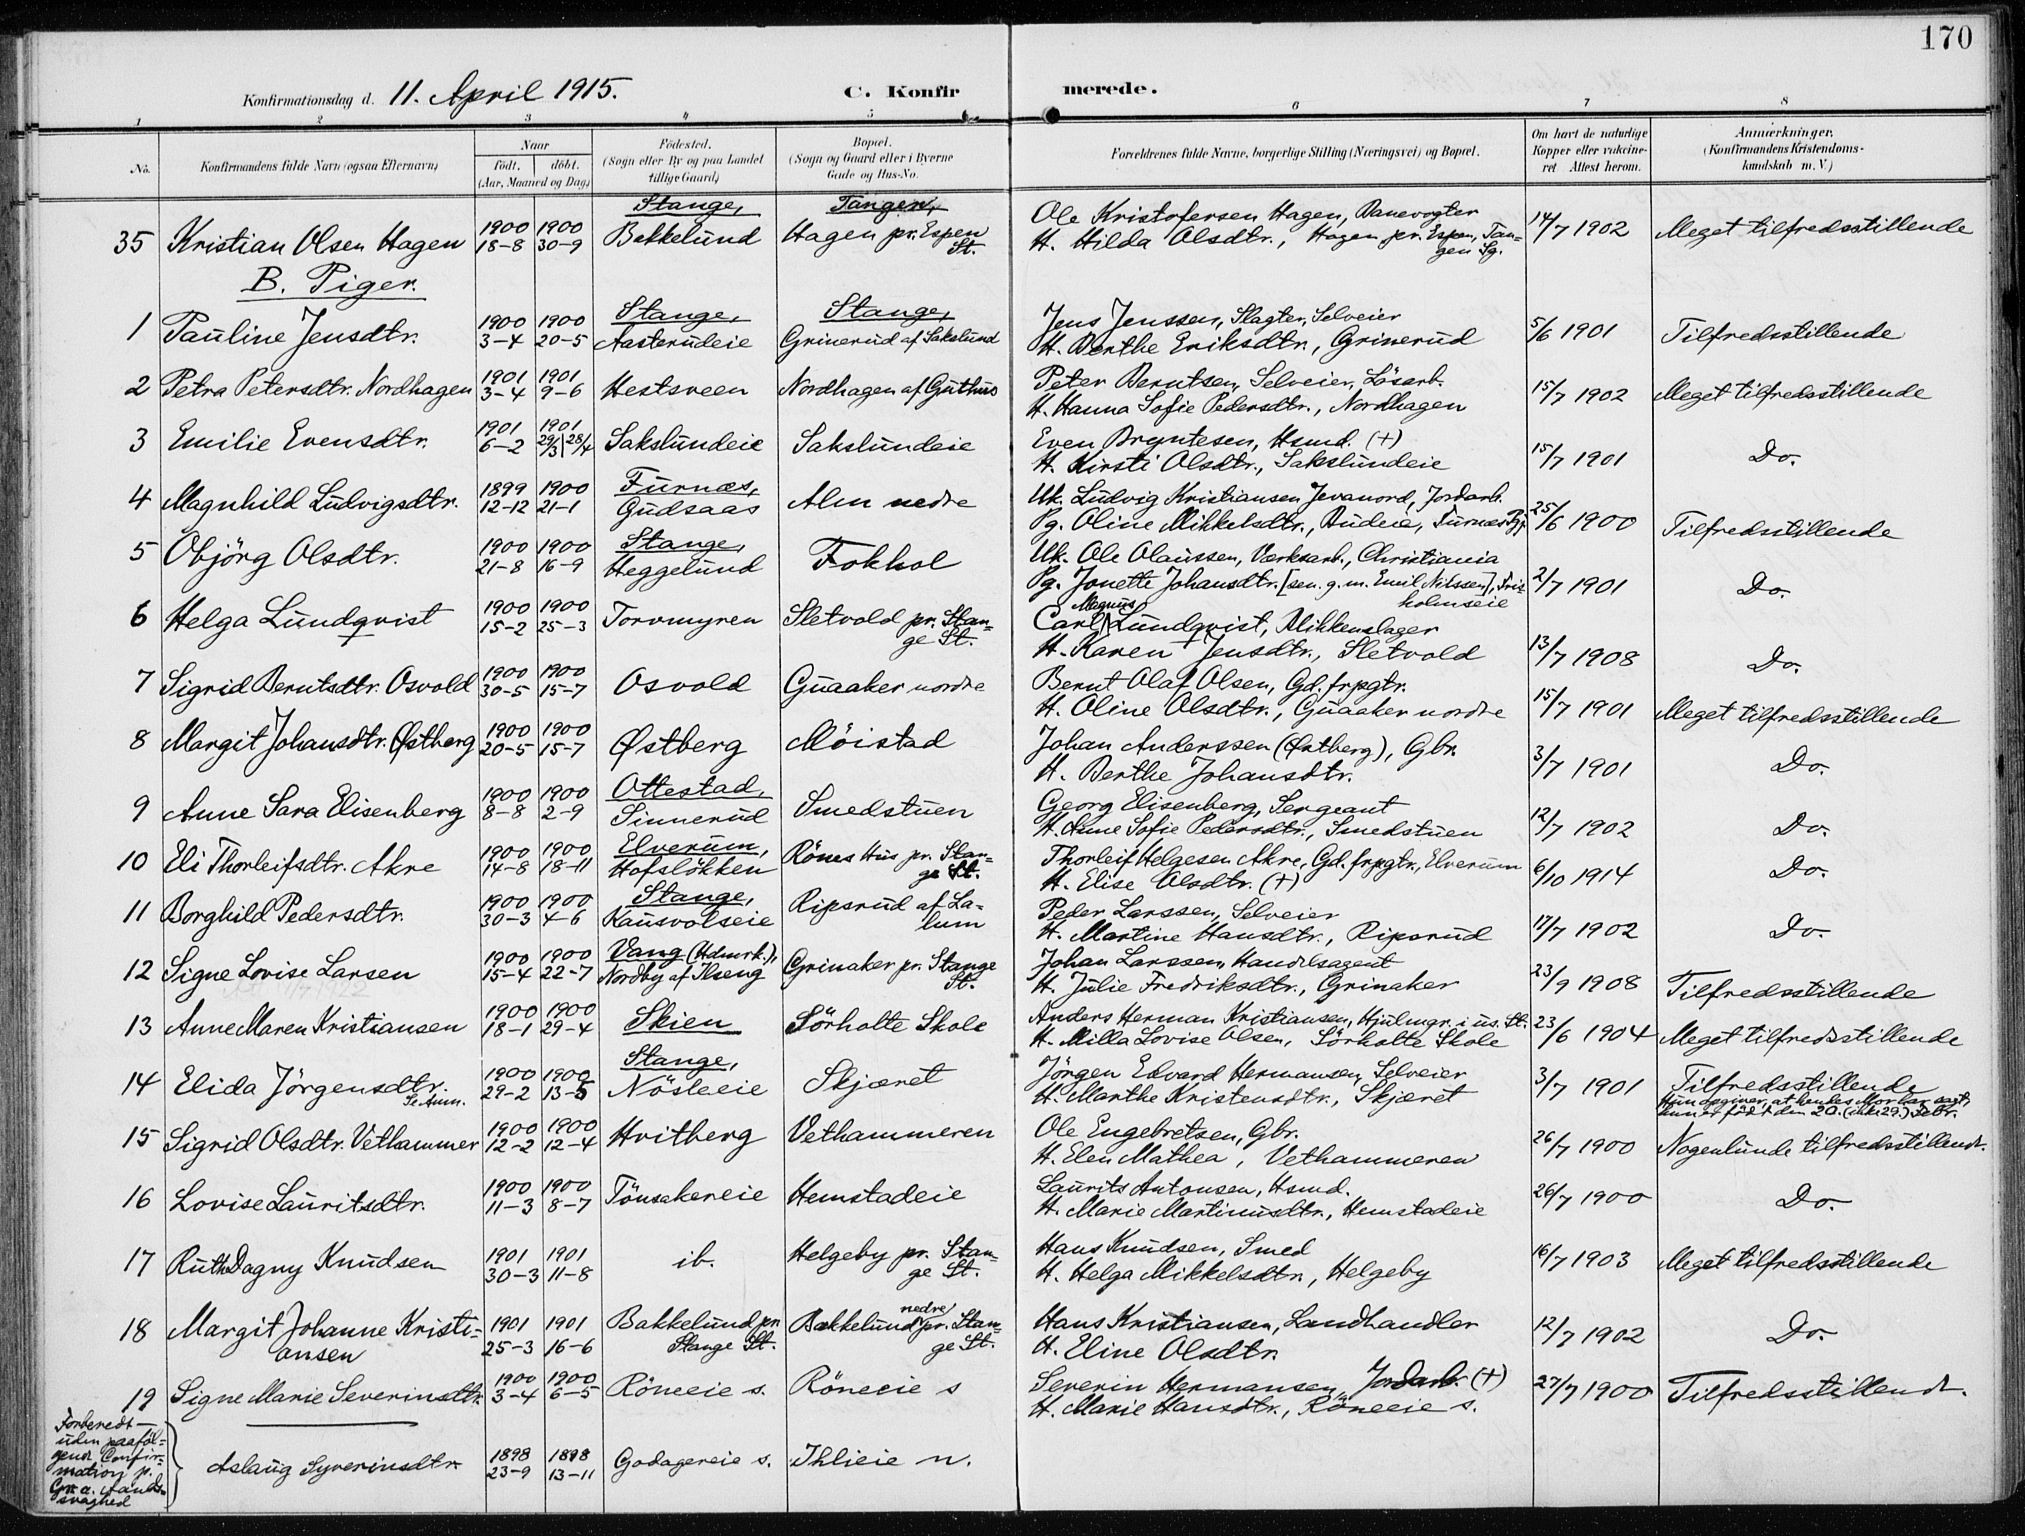 170
Konfirmationsdag d. 11. April 1915.
C. Konfirmerede.
1 2 3 4 5 6 7 8
No. Konfirmandens fulde Navn (ogsaa Efternavn) Naar født, døbt. (Aar, Maaned og Dag.) Fødested. (Sogn eller By og paa Landet tillige Gaard.) Bopæl. (Sogn og Gaard eller i Byerne Gade og Hus-No. Forældrenes fulde Navne, borgerlige Stilling (Næringsvei) og Bopæl. Om havt de naturlige Kopper eller vaccineret Attest herom. Anmærkninger. (Konfirmandens Kristendomskundskab m. V.)
35 Kristian Olsen Hagen 1900 18-8 1900 30-9 Stange, Bekkelund Tangen, Hagen pr. Espen St. Ole Kristofersen Hagen, Banevogter
H. Hilda Olsdtr., Hagen pr. Espen, Tangen Sg. 14/7 1902 Meget tilfredsstillende
B. Piger.
1 Pauline Jensdtr. 1900 3-4 1900 20-5 Stange, Aasterudeie Stange, Grinerud af Sakslund Jens Jenssen, Slagter, Selveier
H. Berthe Eriksdtr., Grinerud 5/6 1901 Tilfredsstillende
2 Petra Petersdtr. Nordhagen 1901 3-4 1901 9-6 Hestsveen Nordhagen af Guthus Peter Berntsen, Selveier, Lösarb.
H. Hanna Sofie Pedersdtr., Nordhagen 15/7 1902 Meget tilfredsstillende
3 Emilie Evensdtr. 1901 6-2 1901 29/3 | 28/4 Sakslundeie Sakslundeie Even Bryntesen, Hsmd. (+)
H. Kirsti Olsdtr., Sakslundeie 15/7 1901 Do.
4 Magnhild Ludvigsdtr. 1899 12-12 1900 21-1 Furnæs, Gudsaas Alm nedre Uk. Ludvig Kristiansen Jevanord, Jordarb.
Pg. Oline Mikkelsdtr., Budeie, Furnæs Pgj. 25/6 1900 Tilfredsstillende
5 Objörg Olsdtr. 1900 21-8 1900 16-9 Stange, Heggelund Fokhol Uk. Ole Olaussen, Værksarb., Christiania
Pg. Jonette Johansdtr. [sen. g. m. Emil Nilssen], Frisholmseie 2/7 1901 Do.
6 Helga Lundqvist 1900 15-2 1900 25-3 Torvmyren Sletvold pr. Stange St. Carl Magnus Lundqvist, Blikkenslager
H. Karen Jensdtr., Sletvold 13/7 1908 Do.
7 Sigrid Berntsdtr. Osvold 1900 30-5 1900 15-7 Osvold Guaaker nordre Bernt Olaf Olsen, Gd. frpgtr.
H. Oline Olsdtr., Guaaker nordre 15/7 1901 Meget tilfredsstillende
8 Margit Johansdtr. Østberg 1900 20-5 1900 15-7 Østberg Möistad Johan Anderssen (Østberg), Gbr.
H. Berthe Johansdtr. 3/7 1901 Do.
9 Anne Sara Elisenberg 1900 8-8 1900 2-9 Ottestad, Sinnerud Smedstuen Georg Elisenberg, Sergeant
H. Anne Sofie Pedersdtr., Smedstuen 12/7 1902 Do.
10 Eli Thorleifsdtr. Akre 1900 14-8 1900 18-11 Elverum, Hofslökken Rönes Hus pr. Stange St. Thorleif Helgesen Akre, Gd. frpgtr., Elverum
H. Elise Olsdtr. (+) 6/10 1914 Do.
11 Borghild Pedersdtr. 1900 30-3 1900 4-6 Stange, Kausvolseie Ripsrud af Lalum Peder Larssen, Selveier
H. Martine Hansdtr., Ripsrud 17/7 1902 Do.
12 Signe Lovise Larsen 1900 15-4 1900 22-7 Vang (Hdmrk.), Nordby af Ilseng Grinaker pr. Stange St. Johan Larssen, Handelsagent
H. Julie Fredriksdtr., Grinaker 23/9 1908 Tilfredsstillende
13 Anne Maren Kristiansen 1900 18-1 1900 29-4 Skien Sörholte Skole Anders Herman Kristiansen, Hjulmgr. i us. St.
H. Milla Lovise Olsen, Sörholte Skole 23/6 1904 Meget tilfredsstillende
14 Elida Jörgensdtr. Se Anm. 1900 29-2 1900 13-5 Stange, Nösteeie Skjæret Jörgen Edvard Hermansen, Selveier
H. Marthe Kristensdtr., Skjæret 3/7 1901 Tilfredsstillende
Hun opgiver, at hendes Mor har sagt, hun er född den 20. (ikke 29.) Febr.
15 Sigrid Olsdtr. Vethammer 1900 12-2 1900 12-4 Hvitberg Vethammeren Ole Engebretsen, Gbr.
H. Elen Mathea, Vethammeren 26/7 1900 Nogenlunde tilfredsstillende.
16 Lovise Lauritsdtr. 1900 11-3 1900 8-7 Tönsakereie Hemstadeie Laurits Antonsen, Hsmd.
H. Marie Martinusdtr., Hemstadeie 26/7 1900 Do.
17 Ruth Dagny Knudsen 1901 30-3 1901 11-8 ib. Helgeby pr. Stange St. Hans Knudsen, Smed
H. Helga Mikkelsdtr., Helgeby 16/7 1903 Meget tilfredsstillende
18 Margit Johanne Kristiansen 1901 25-3 1901 16-6 Bakkelund pr. Stange St. Bakkelund nedre pr. Stange St. Hans Kristiansen, Landhandler
H. Eline Olsdtr. 12/7 1902 Do.
19 Signe Marie Severinsdtr. 1900 3-4 1900 6-5 Röneeie s. Röneeie s Severin Hermansen, Jordarb. (+)
H. Marie Hansdtr., Röneeie s. 27/7 1900 Tilfredsstillende.
Forberedt uden paafölgende Confirmation p. Gr. a. Aandssvaghed
Aslaug Syverinsdtr. 1898 23-9 1898 13-11 Godagereie s. Ihlieie n.